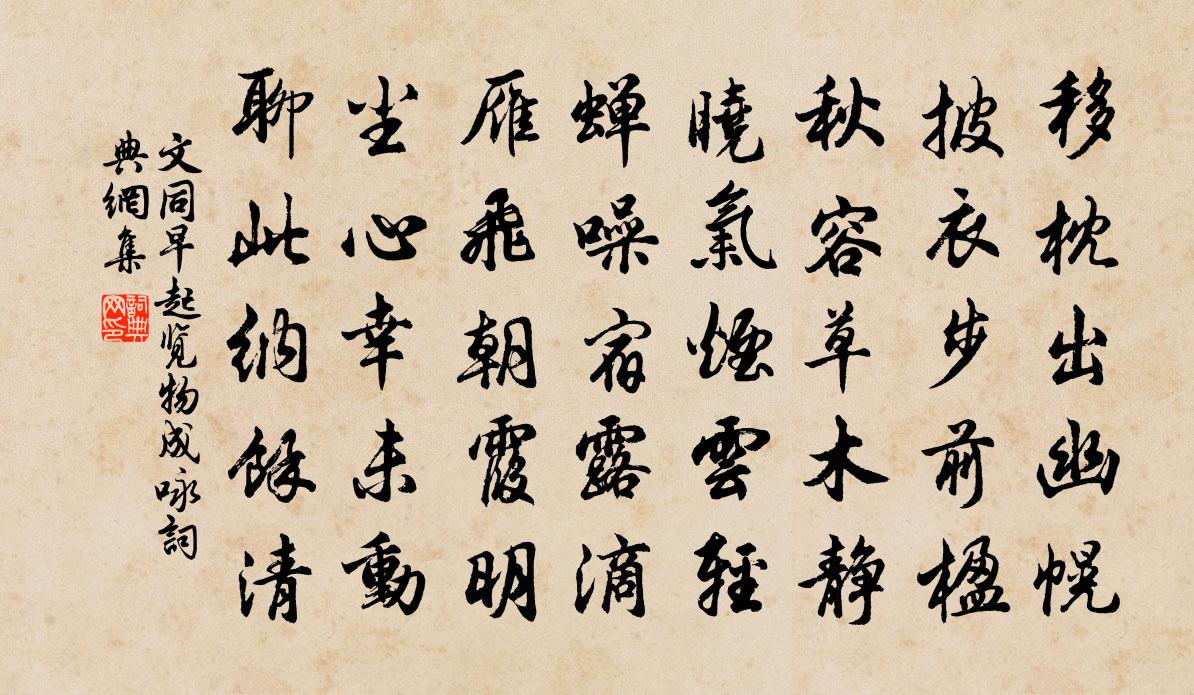 移枕出幽幌
披衣步前楹
秋容草木静
曉氣煙雲輕
蝉噪宿露滴
雁飛朝霞明
尘心幸未動
聊此納餘清
文同早起览物成咏詞
典網集
詞典网印